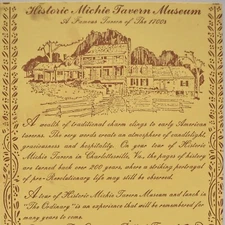 Historic Michie Tavern Museum
A Famous Tavern of The 1700s
A wealth of traditional charm clings to early American
taverns. The very words create an atmosphere of candlelight,
graciousness and hospitality. On your tour of Historic
Michie Tavern in Charlottesville, Va., the pages of history
are turned back over 200 years, where a striking portrayal
of pre-Revolutionary life may still be observed.
A tour of Historic Michie Tavern Museum and lunch in
"The Ordinary" is an experience that will be remembered for
many years to come.